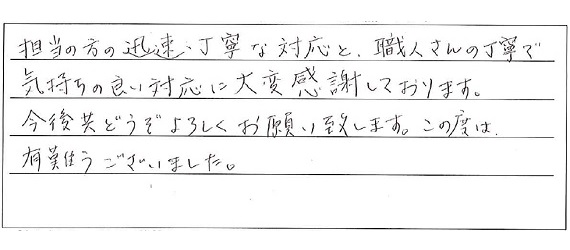 担当の方の迅速、丁寧な対応と、職人さんの丁寧で
気持ちの良い対応に大変感謝しております。
今後共どうぞよろしくお願い致します。この度は、
有難うございました。